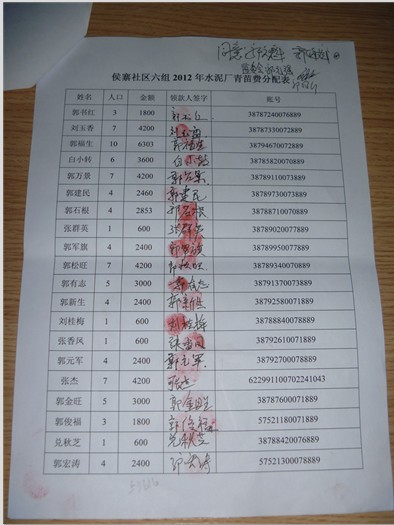 侯寨社区六组 2012 年水泥厂青苗费分配表
姓名 人口 金额 领款人签字 账号
郭书红 3 1800 38787240076889
刘玉香 7 4200 刘玉香 38787330072889
郭极生 10 6303 郭极生 38794670072889
白小转 6 3600 白小转 38785820079889
郭万景 7 4200 郭万景 38789110073889
郭建民 4 2460 郭建民 38789730073889
郭石根 4 2853 郭石根 38788710079889
张群英 1 600 张群英 38789020077889
郭军旗 4 2400 郭军旗 38789950077889
郭松旺 7 4200 郭松旺 38789340070889
郭有志 5 3000 郭有志 38791370073889
郭新生 4 2400 郭新生 38792580071889
刘桂梅 1 600 刘桂梅 38788840078889
张香风 1 600 张香风 38792610071889
郭元军 4 2400 郭元军 38792700078889
张杰 7 4200 张杰 622991100702241043
郭金旺 5 3000 郭金旺 38787600071889
郭俊福 3 1800 郭俊福 57521180071889
兑秋芝 1 600 兑秋芝 38788420076889
郭宏涛 4 2400 郭宏涛 57521300078889